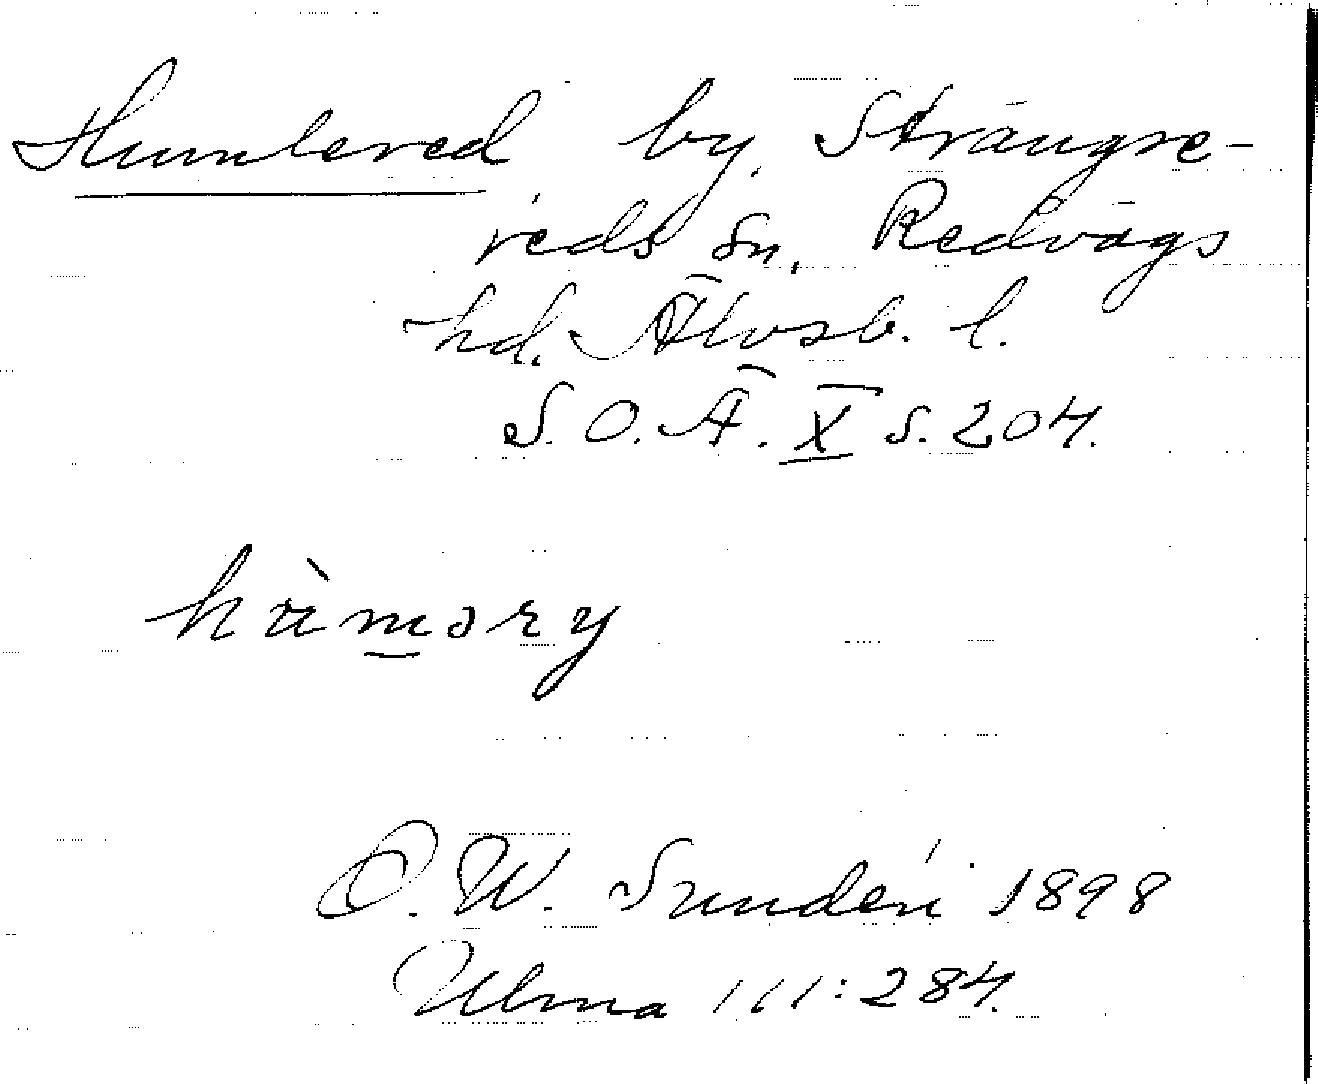 Humlered by, Strängse-
reds sn, Redvägs
hd. Älvsb. l.
S. O. Ä. X s. 204.
hàmɔry
O. W. Sundén 1898
Ulma 111:284.